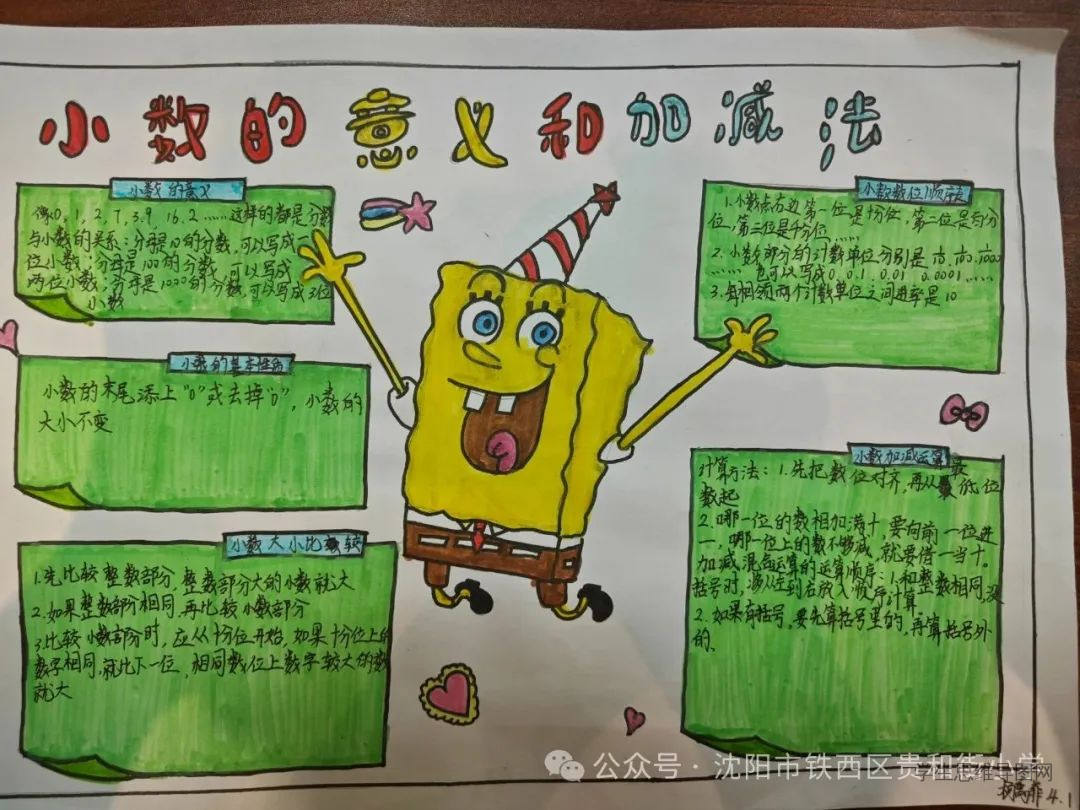 小数的意义和加减法
小数的意义
像0,1,2,7,3.9 16.2……这样的都是分数
与小数的关系:分母是10的分数,可以写成
位小数;分母是100的分数,可以写成
两位小数;分母是1000的分数,可以写成3位
小数
小数的基本性质
小数的末尾添上"0"或去掉"0",小数的
大小不变
小数大小比较
1.先比较整数部分,整数部分大的小数就大
2.如果整数部分相同,再比较小数部分
3.比较小数部分时,应从十分位开始,如果十分位上的
数字相同,就比下一位,相同数位上数字较大的数
就大
小数数位顺序表
1.小数点右边第一位是十分位,第二位是百分
位,第三位是千分位……
2.小数部分的计数单位分别是
……也可以写成0,0.1 0.01 0.0001……
3.每相领两个计数单位之间进率是10
小数加减运算
计算方法:1.先把数位对齐,再从最低位
数起
2.哪一位的数相加满十,要向前一位进
一,哪一位上的数不够减,就要借一当十。
加减混合运算的运算顺序:1.和整数相同,没
括号时,
2.如果有括号,要先算括号里的,再算括号外
的。
公众号·沈阳市铁西区贵和街小学
学生思维导图网
4.1